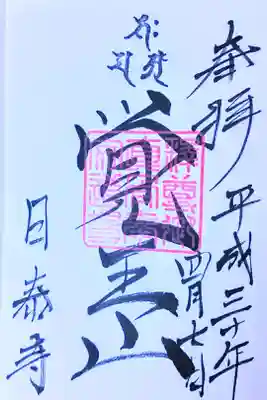 奉拝 平成三十年
四月七日
覚王山
日泰寺